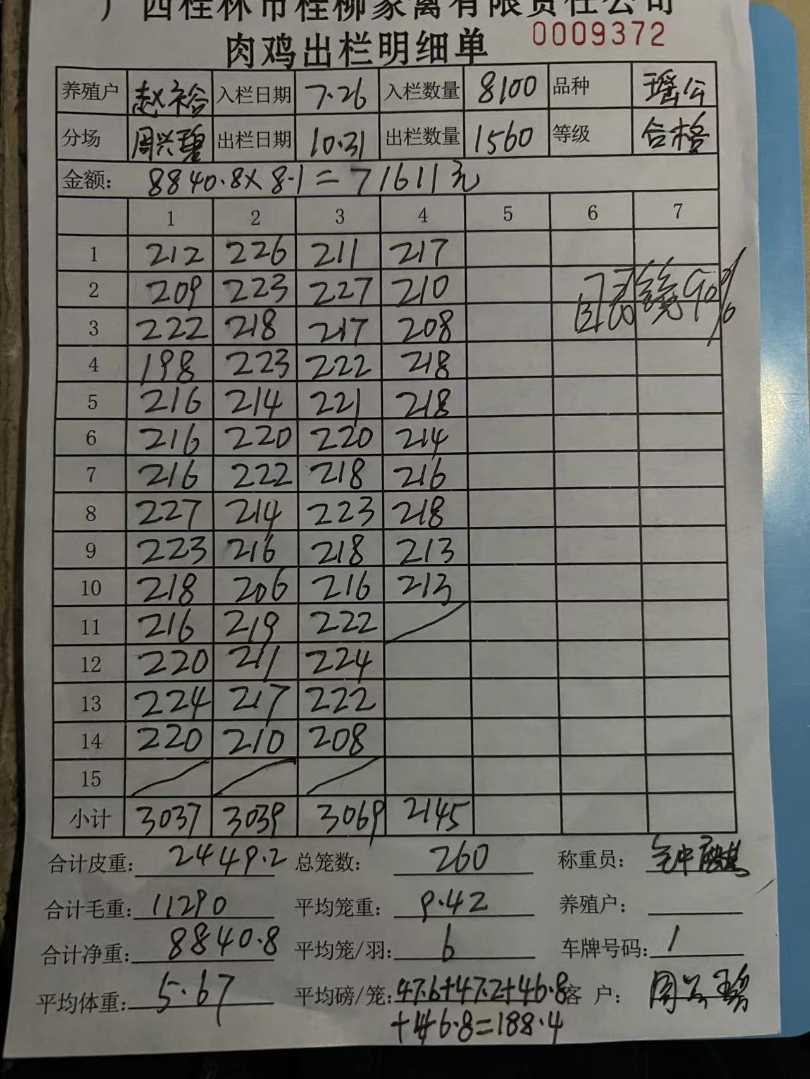 广西桂林市桂柳家禽有限责任公司
肉鸡出栏明细单 0009372
养殖户 赵裕 入栏日期 7.26 入栏数量 8100 品种 瑶公
分场 周兴碧 出栏日期 10.31 出栏数量 1560 等级 合格
金额: 8840.8×8.1=71611元
1 2 3 4 5 6 7
1 212 226 211 217
2 209 223 227 210 90%
3 222 218 217 208
4 198 223 222 218
5 216 214 221 218
6 216 220 220 214
7 216 222 218 216
8 227 214 223 218
9 223 216 218 213
10 218 206 216 213
11 216 219 222
12 220 211 224
13 224 217 222
14 220 210 208
15
小计 3037 3039 3069 2145
合计皮重: 2449.2 总笼数: 260 称重员:
合计毛重: 11290 平均笼重: 9.42 养殖户:
合计净重: 8840.8 平均笼/羽: 6 车牌号码: 1
平均体重: 5.67 平均磅/笼: 47.6+47.2+46.8 客户:
+46.8=188.4